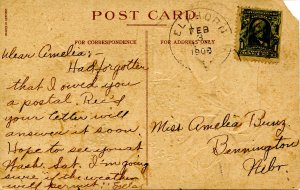 POST CARD
FOR CORRESPONDENCE
FOR ADDRESS ONLY
FEB
3
Dear Amelia:-
Had forgotten
that I owed you
a postal. Rec'd
your letter will
answer it soon.
Hope to see you at
Wash. Sat. I'm going
sure if the weather
will permit.
Miss Amelia Bunz
Bennington
Nebr.